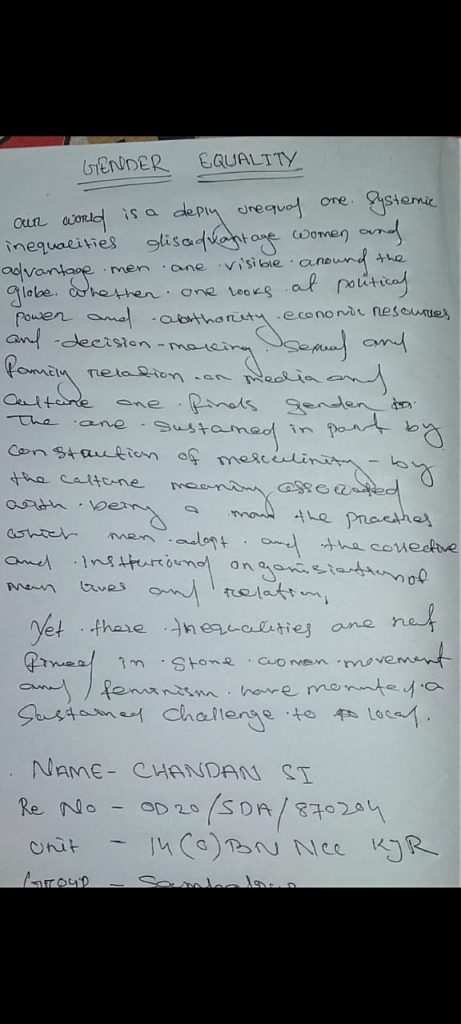 GENDER EQUALITY
our world is a deply unequal one. Systemic
inequalities disadvantage women and
advantage men are visible around the
globe. whether one looks at political
power and authority. economic resources
and -decision-making. Sexual and
family relation or media and
Culture one finds gender
The are sustained in part by
construction of mesculinity - by
the culture meaning associated
with being a man the practies
which men adopt and the collective
and institutional organisiation of
men lives and relation,
Yet these inequalities are not
fimed in stone women movement
and feminism have mounted a
Sustained challenge to local.
NAME- CHANDAN SI
Re No - OD20/SDA/870204
Unit - 14(O) BN NCC KJR
Group - Sambalpur